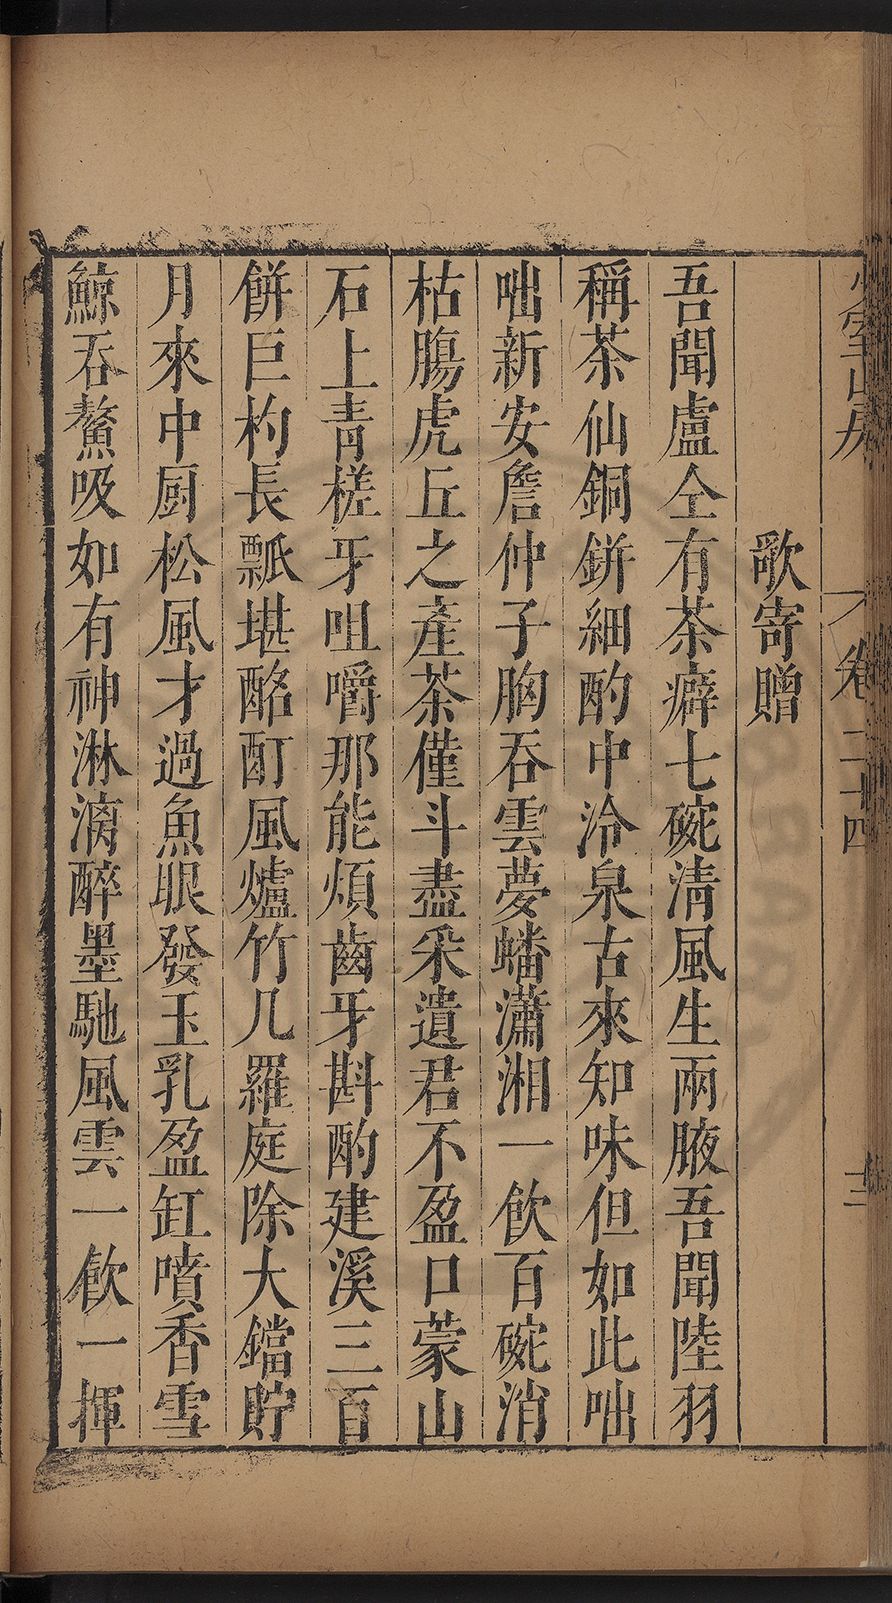 少室山房
卷二十四
三
歌寄贈
吾聞盧仝有茶癖七碗清風生兩腋吾聞陸羽
稱茶仙銅鉼細酌中泠泉古來知味但如此咄
咄新安詹仲子胸吞雲夢蟠瀟湘一飲百碗消
枯腸虎丘之產茶僅斗盡采遺君不盈口蒙山
石上青槎牙咀嚼那能煩齒牙斟酌建溪三百
餅巨杓長瓢堪酩酊風爐竹几羅庭除大鐺貯
月來中厨松風才過魚眼發玉乳盈缸噴香雪
鯨吞鰲吸如有神淋漓醉墨馳風雲一飲一揮